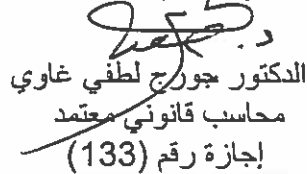 د.
الدكتور جورج لطفي غاوي
محاسب قانوني معتمد
إجازة رقم (133)